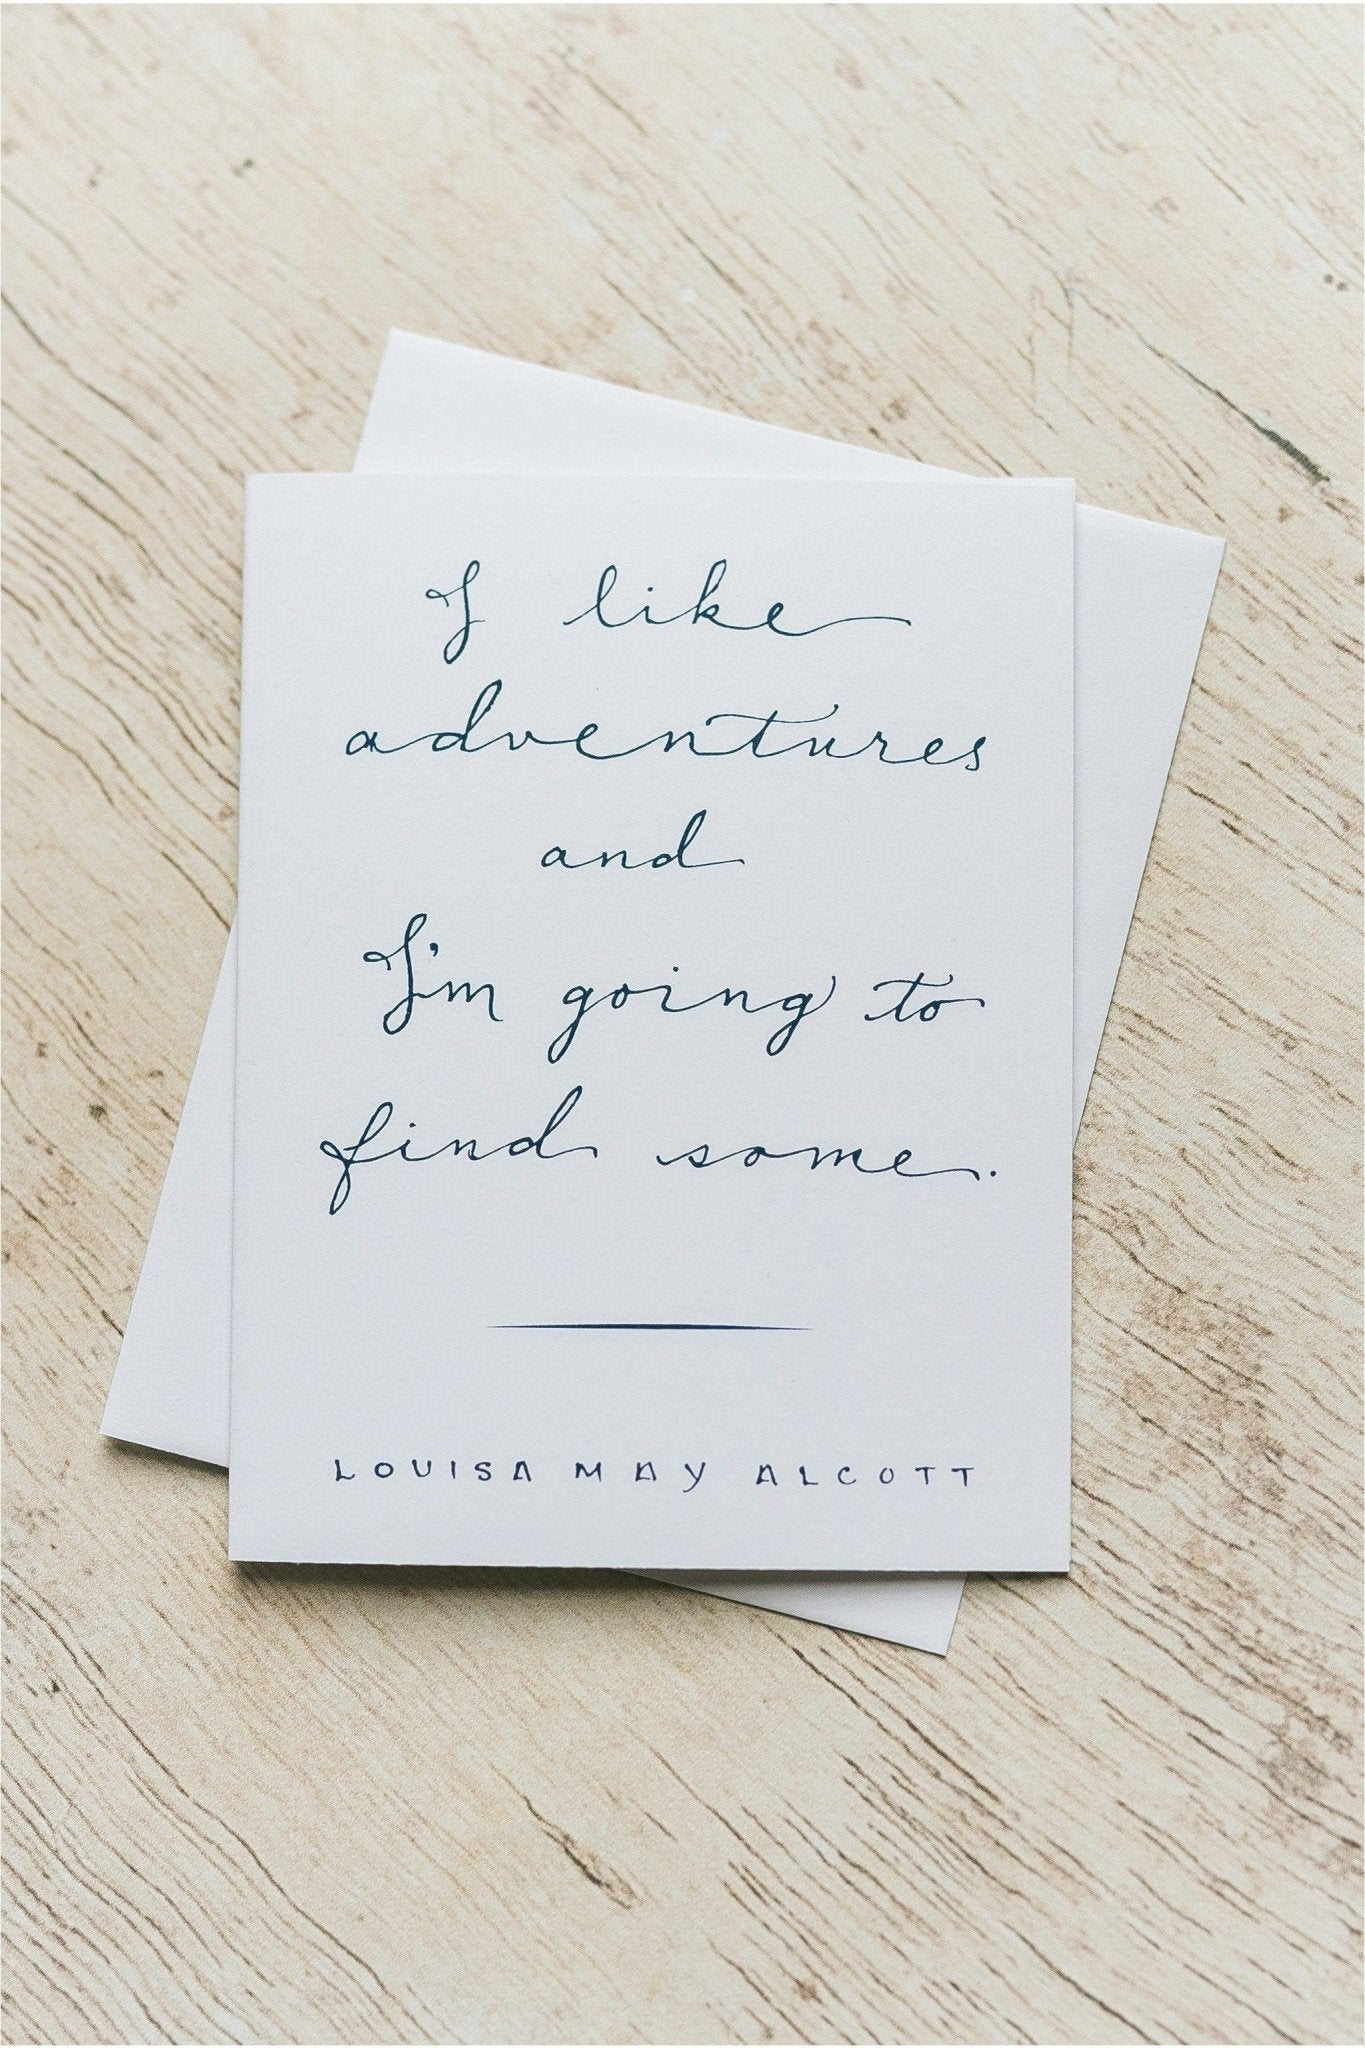 I like
adventures
and
I'm going to
find some.
LOUISA MAY ALCOTT